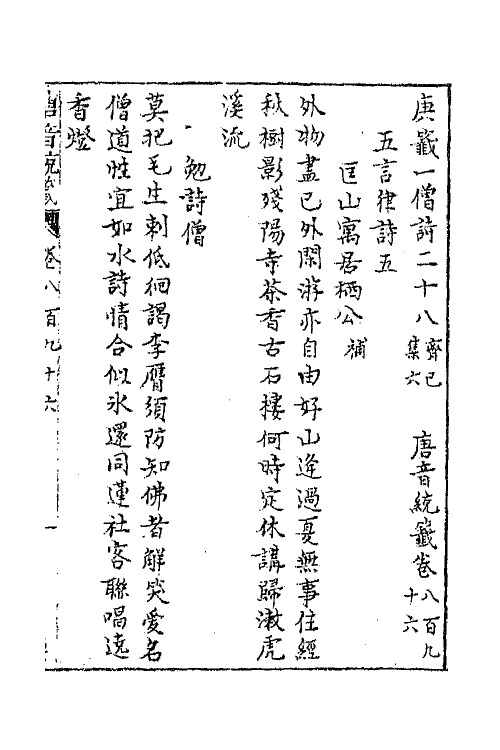 庚籤一僧詩二十八 齊己集六 唐音統籤卷八百九十六
五言律詩五
匡山寓居栖公 補
外物盡已外閑游亦自由好山逢過夏無事住經
秋樹影殘陽寺茶香古石樓何時定休講歸漱虎
溪流
勉詩僧
莫把毛生刺低徊謁李膺須防知佛者解笑愛名
僧道性宜如水詩情合似氷還同蓮社客聯唱遶
香燈
唐音統籤 卷八百九十六 一